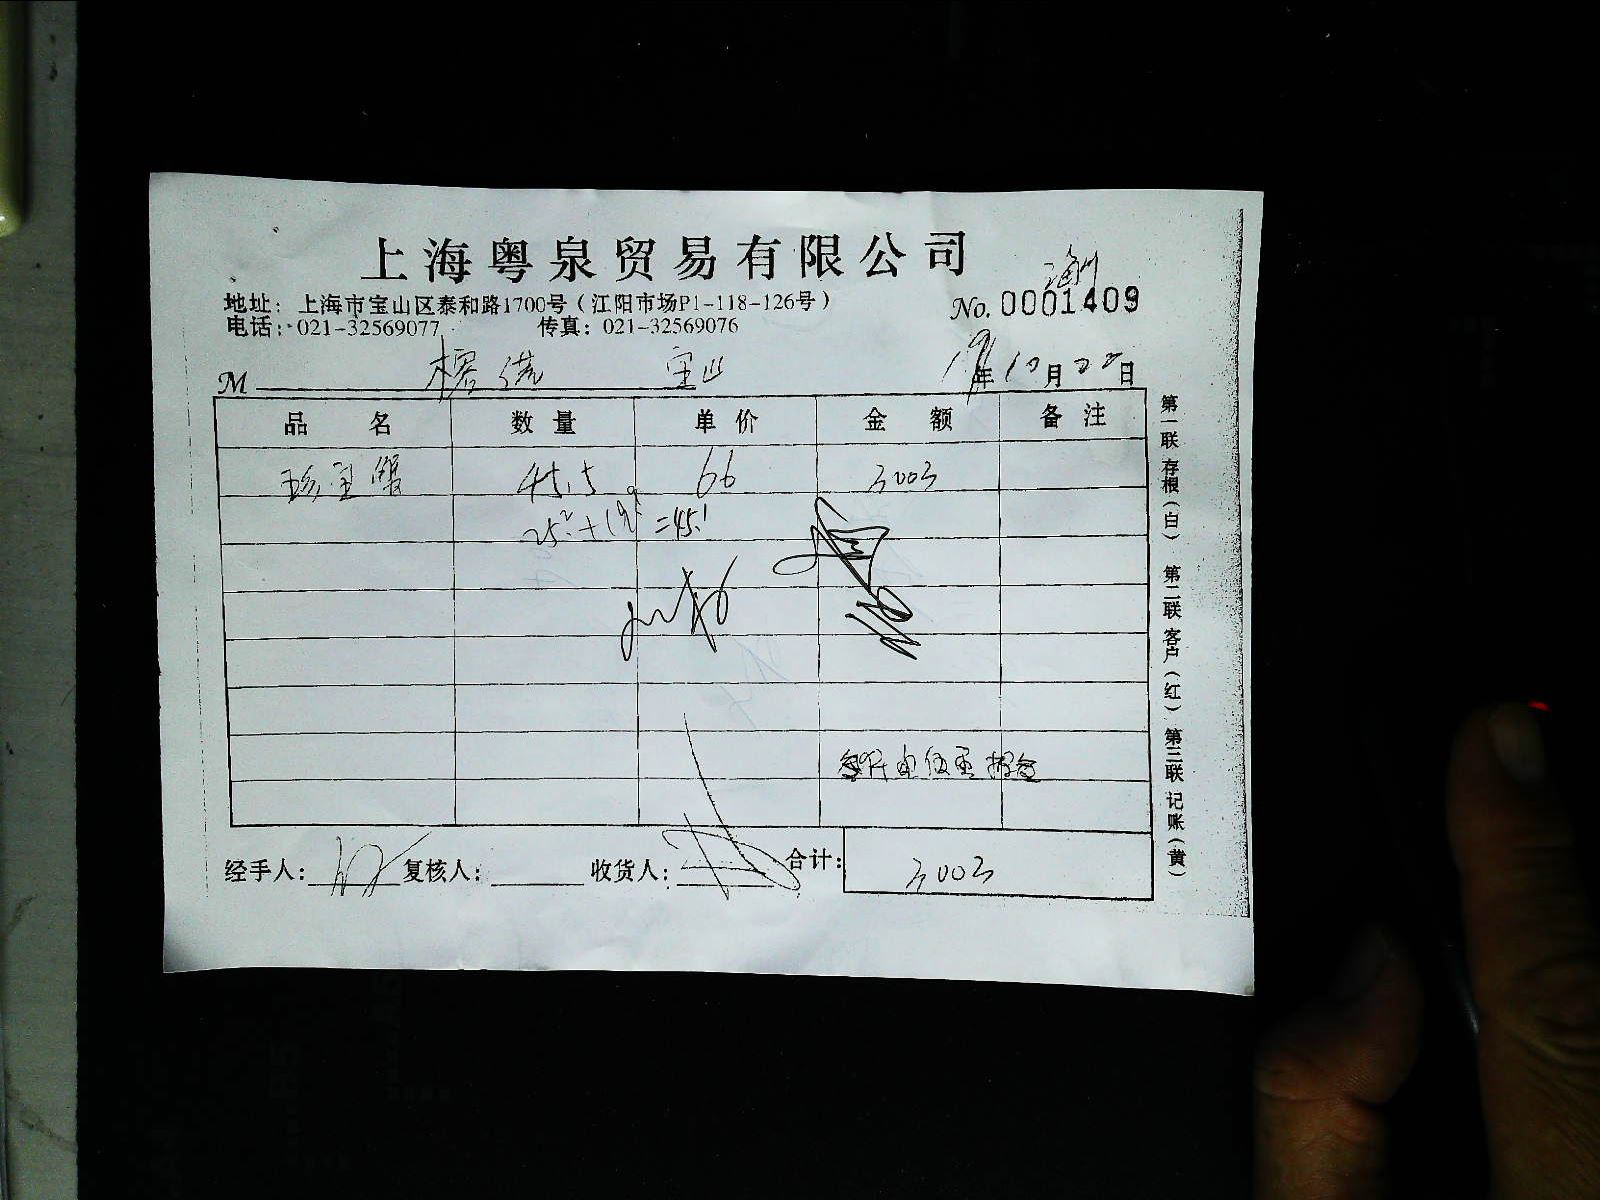 上海粤泉贸易有限公司
地址：上海市宝山区泰和路1700号（江阳市场P1-118-126号）
No. 0001409
电话：021-32569077 传真：021-32569076
M 榕港 宝山 19年10月22日
品名 数量 单价 金额 备注
珍宝蟹 45.5 66 3003
25.2+19.9=45.1
经手人： 复核人： 收货人： 合计：3003
第一联 存根（白） 第二联 客户（红） 第三联 记账（黄）